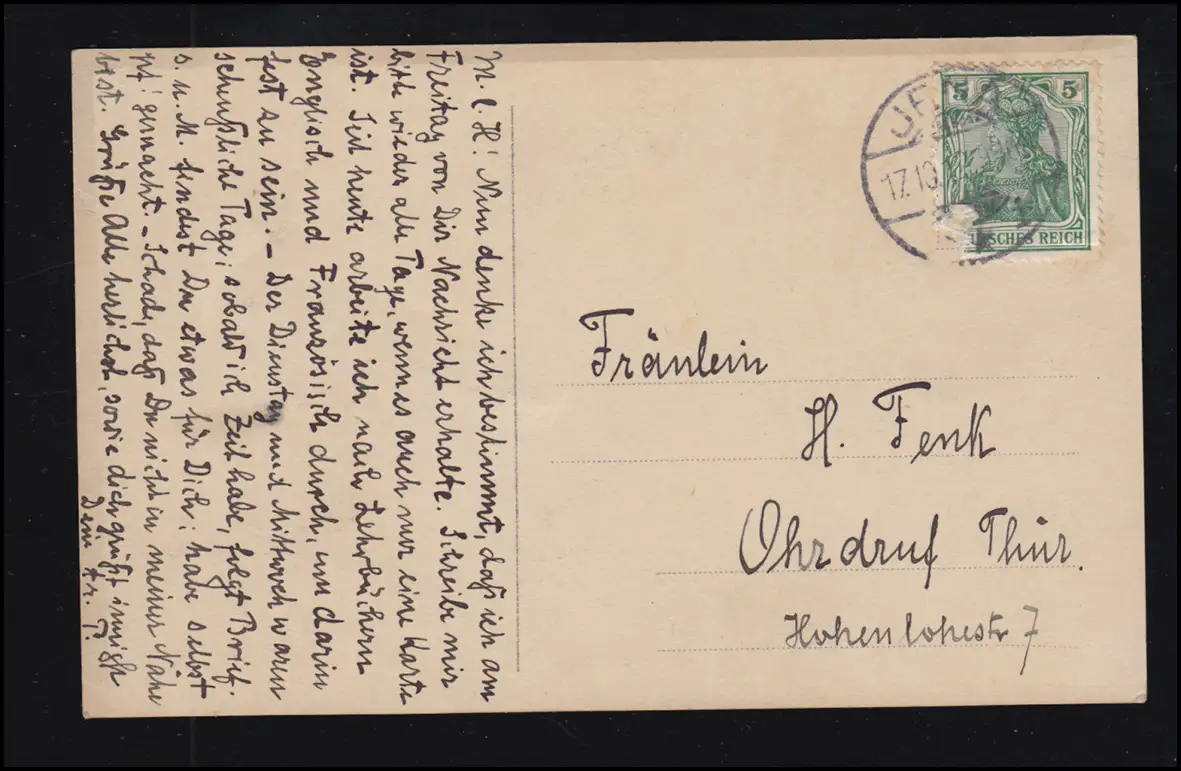 M. l. H! Nun denke ich bestimmt, daß ich am
Freitag von Dir Nachricht erhalte. Schreibe mir
bitte wieder alle Tage, wenn es auch nur eine Karte
ist. Seit heute arbeite ich nach Lehrbüchern
Englisch und Französisch durch, um darin
fest zu sein. – Der Dienstag und Mittwoch waren
scheußliche Tage; sobald ich Zeit habe, folgt Brief.
s. u. M. findest Du etwas für Dich; habe selbst
gemacht. – Schade, daß Du nicht in meiner Nähe
bist. Grüße Alle herzlichst, sowie dich grüßt innigst
Dein
5 5
DEUTSCHES REICH
JE
17.10
Fräulein
H. Fenk
Ohrdruf Thür.
Hohenlohestr 7